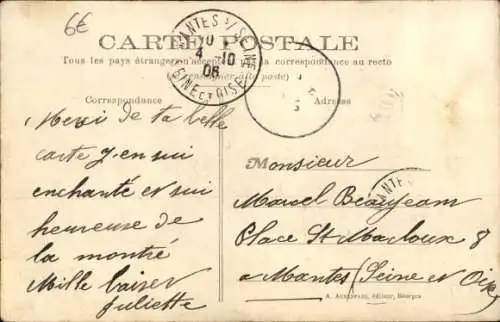 6€
CARTE POSTALE
Tous les pays étrangers n'acceptent pas la correspondance au recto
(se renseigner à la poste)
MANTES S/SEINE
10
4 10
06
SEINE ET OISE
Correspondance
Adresse
Merci de ta belle
carte J'en sui
enchanté et sui
heureuse de
la montré
Mille baiser
Juliette
Monsieur
MANTES
Marcel Beaujeam
Place St Macloux 8
a Mantes (Seine et Oise
A. Auxenfans, éditeur, Bourges